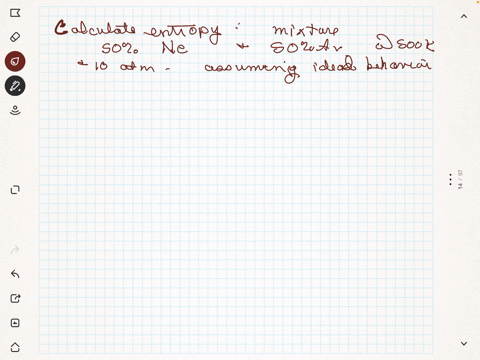 Calculate entropy : mixture
50% Ne + 50% Ar @ 500K
+ 10 atm - assuming ideal behavior
14 / 97